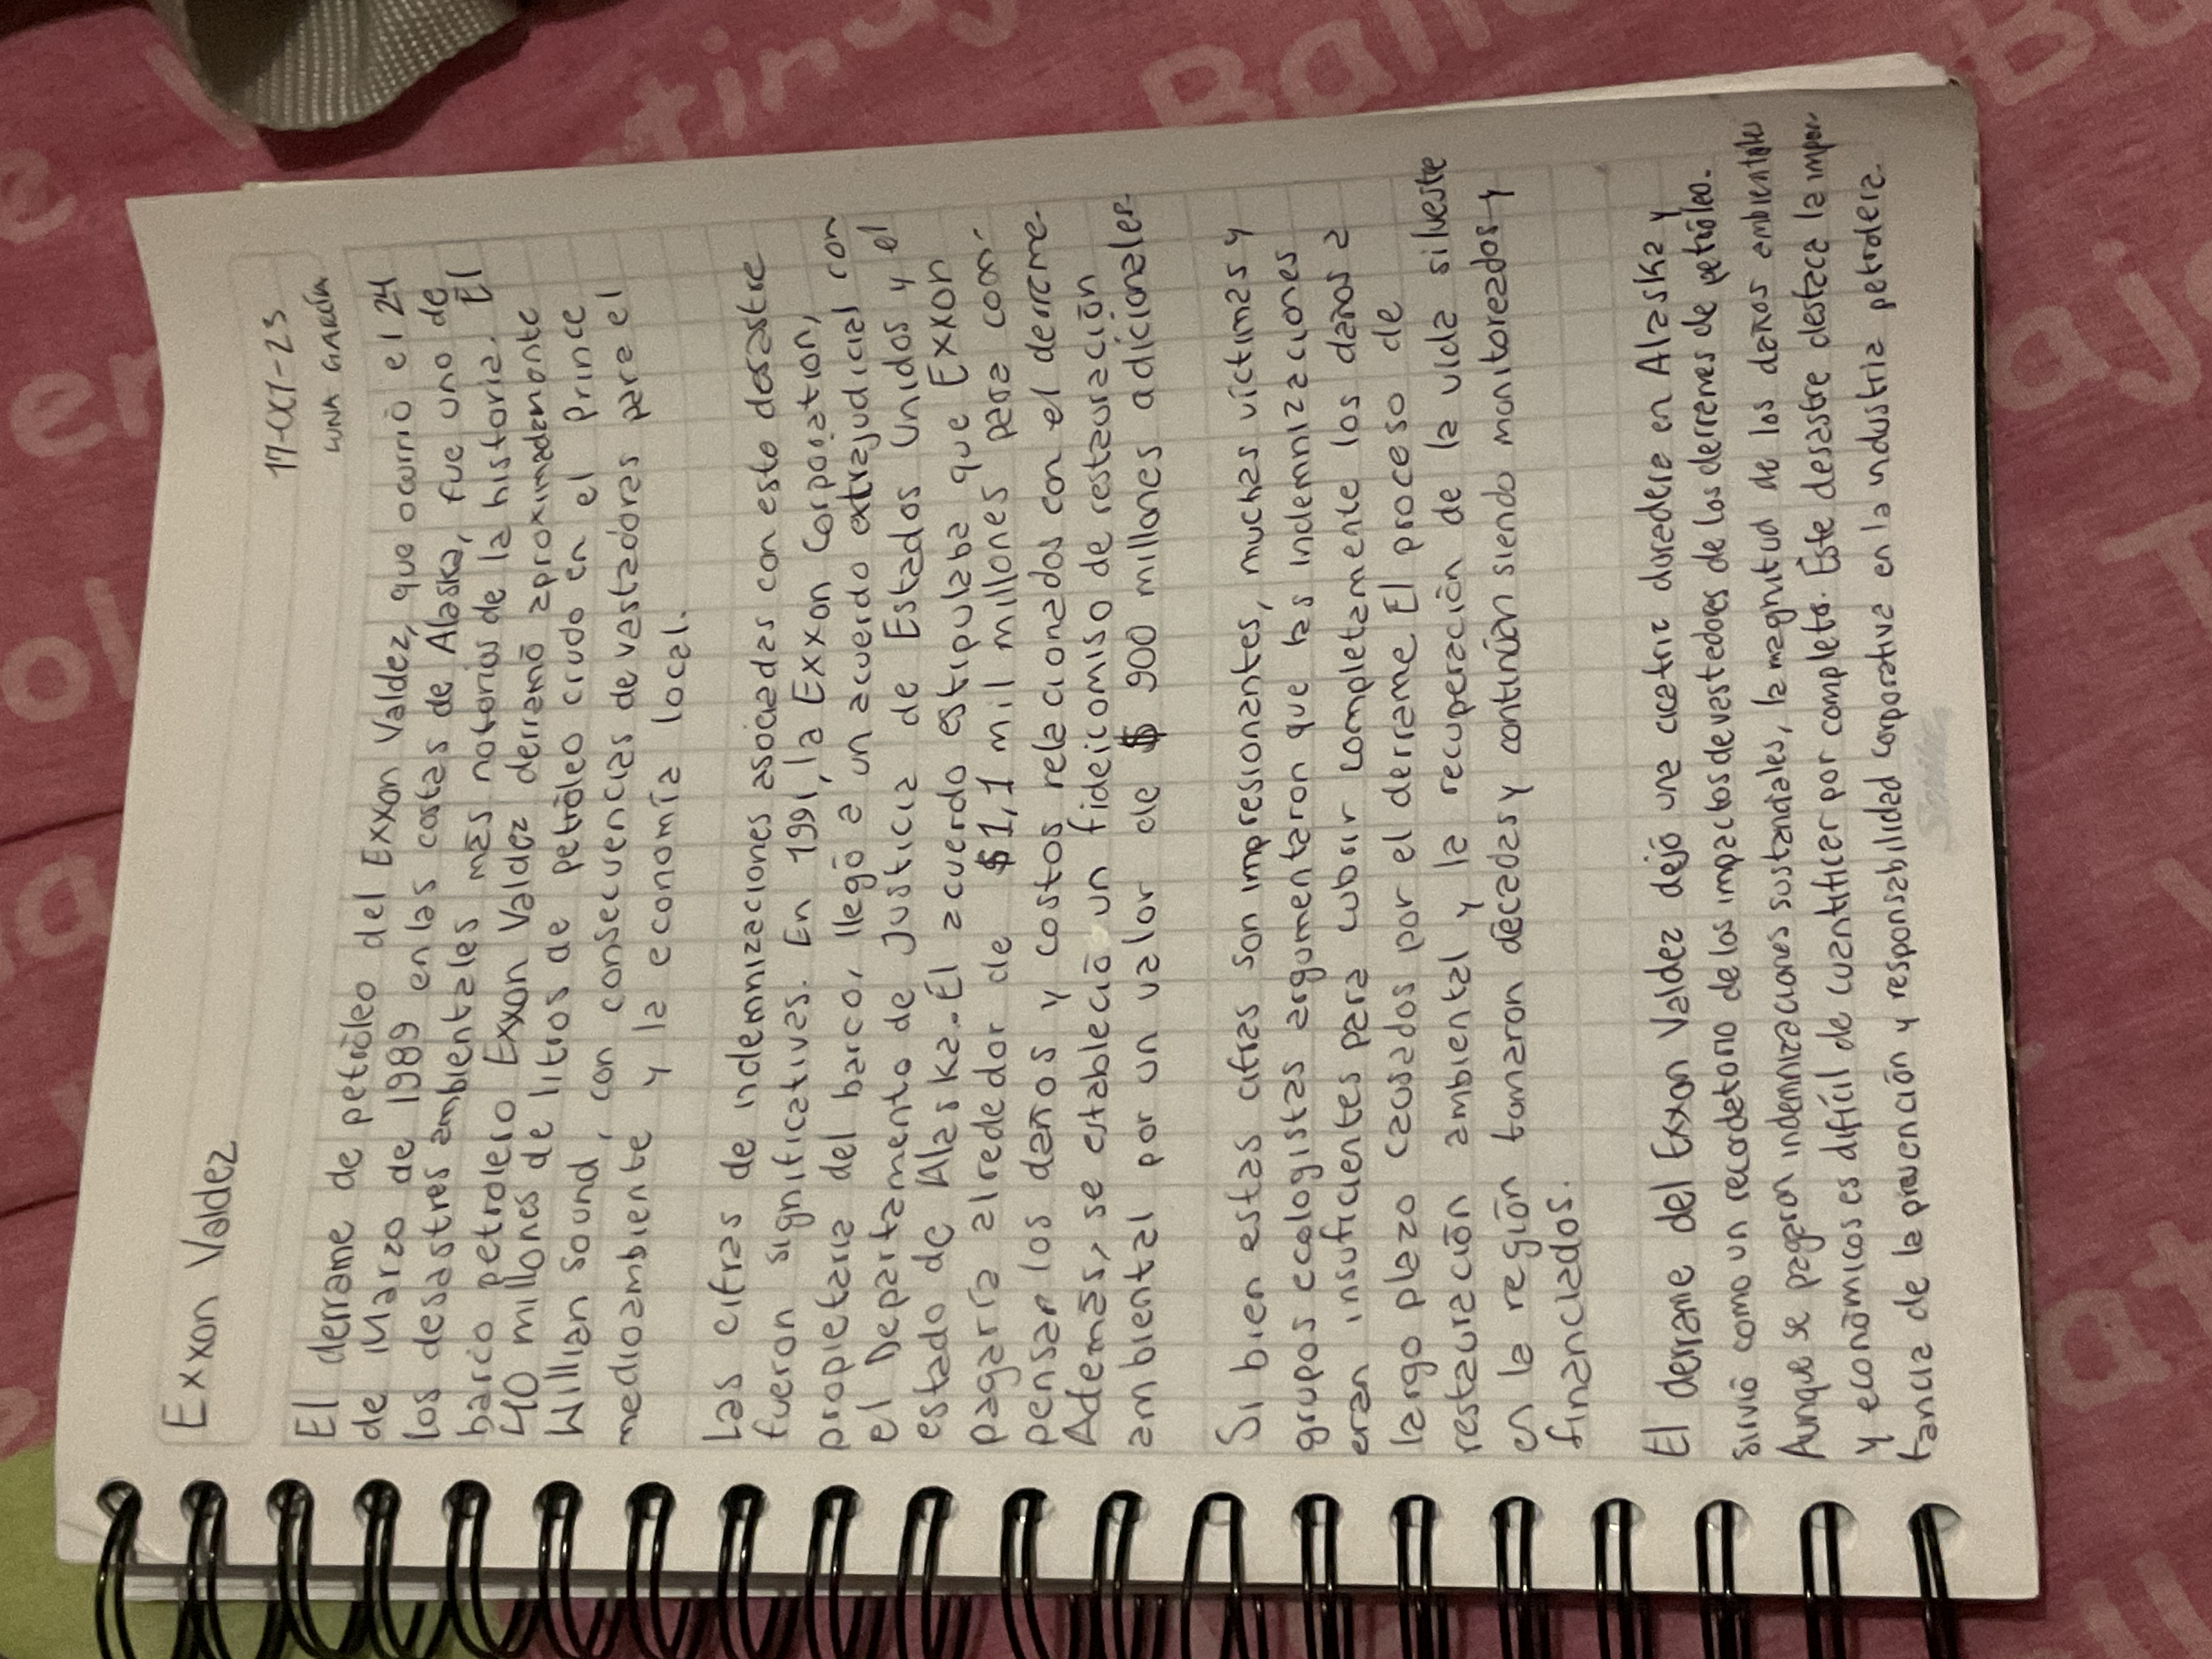 Exxon Valdez
17-OCT-23
LUNA GARCÍA
El derrame de petróleo del Exxon Valdez, que ocurrió el 24
de Marzo de 1989 en las costas de Alaska, fue uno de
los desastres ambientales más notorios de la historia. El
barco petrolero Exxon Valdez derramó aproximadamente
40 millones de litros de petróleo crudo en el prince
Willian sound, con consecuencias devastadoras para el
medioambiente y la economía local.
Las cifras de indemnizaciones asociadas con este desastre
fueron significativas. En 1991, la Exxon Corporation,
propietaria del barco, llegó a un acuerdo extrajudicial con
el Departamento de Justicia de Estados Unidos y el
estado de Alaska. El acuerdo estipulaba que Exxon
pagaría alrededor de $1,1 mil millones para com-
pensar los daños y costos relacionados con el derrame
Además, se estableció un fideicomiso de restauración
ambiental por un valor de $ 900 millones adicionales
Si bien estas cifras son impresionantes, muchas víctimas y
grupos ecologistas argumentaron que las indemnizaciones
eran insuficientes para cubrir completamente los daños a
largo plazo causados por el derrame El proceso de
restauración ambiental y la recuperación de la vida silvestre
en la región tomaron décadas y continúan siendo monitoreados y
financiados.
El derrame del Exxon Valdez dejó una cicatriz duradera en Alaska y
sirvió como un recordatorio de los impactos devastadores de los derrames de petróleo.
Aunque se pagaron indemnizaciones sustanciales, la magnitud de los daños ambientales
y económicos es difícil de cuantificar por completo. Este desastre destaca la impor-
tancia de la prevención y responsabilidad corporativa en la industria petrolera.